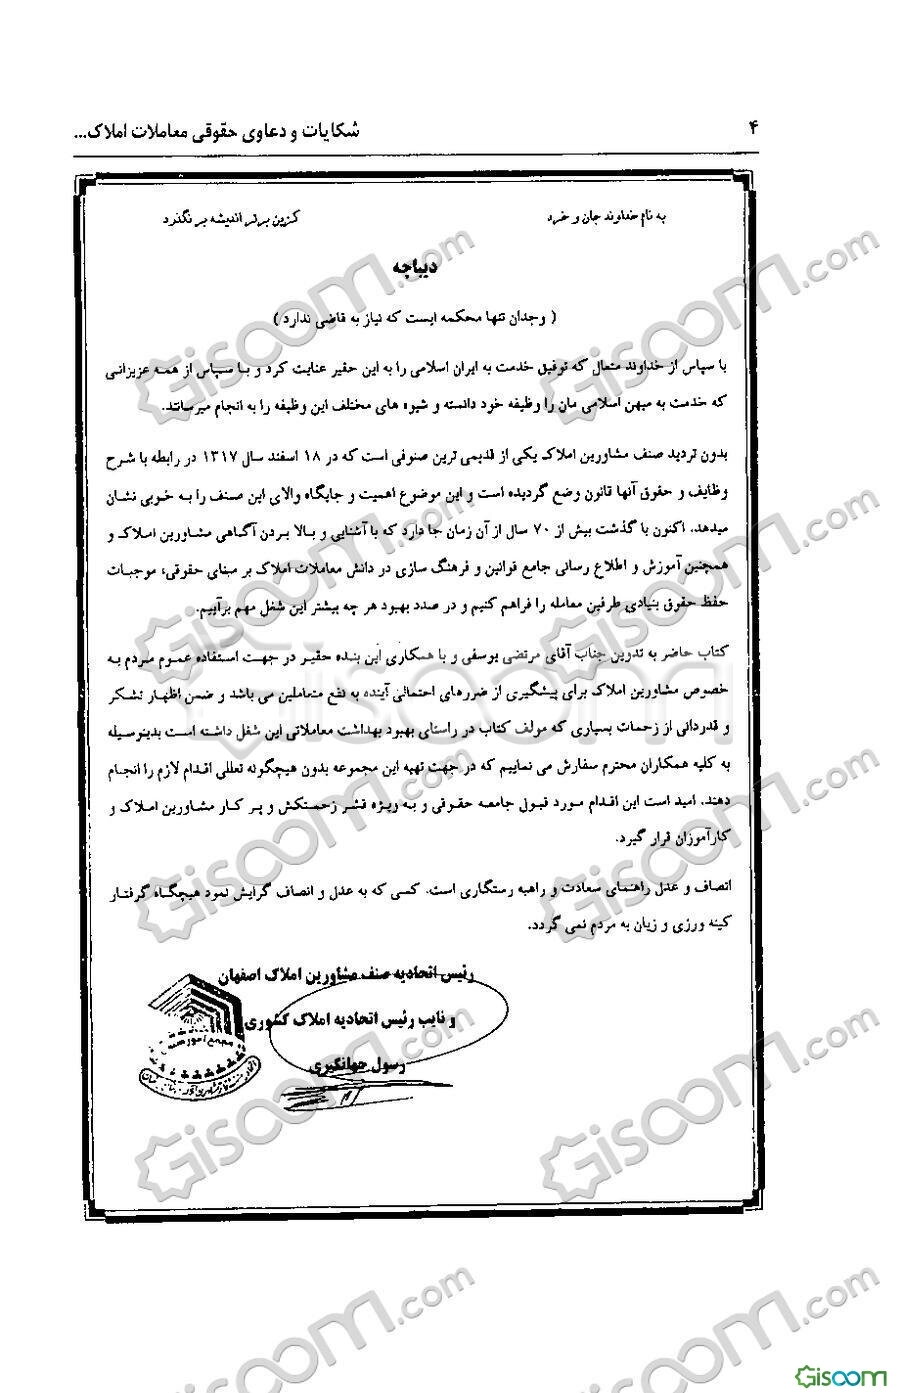 ۴
شکایات و دعاوی حقوقی معاملات املاک...
به نام خداوند جان و خرد
کزین برتر اندیشه بر نگذرد
دیباچه
( وجدان تنها محکمه ایست که نیاز به قاضی ندارد )
با سپاس از خداوند متعال که توفیق خدمت به ایران اسلامی را به این حقیر عنایت کرد و با سپاس از همه عزیزانی
که خدمت به میهن اسلامی مان را وظیفه خود دانسته و شیوه های مختلف این وظیفه را به انجام میرسانند.
بدون تردید صنف مشاورین املاک یکی از قدیمی ترین صنوفی است که در ۱۸ اسفند سال ۱۳۱۷ در رابطه با شرح
وظایف و حقوق آنها قانون وضع گردیده است و این موضوع اهمیت و جایگاه والای این صنف را به خوبی نشان
میدهد. اکنون با گذشت بیش از ۷۰ سال از آن زمان جا دارد که با آشنایی و بالا بردن آگاهی مشاورین املاک و
همچنین آموزش و اطلاع رسانی جامع قوانین و فرهنگ سازی در دانش معاملات املاک بر مبنای حقوقی، موجبات
حفظ حقوق بنیادی طرفین معامله را فراهم کنیم و در صدد بهبود هر چه بیشتر این شغل مهم برآییم.
کتاب حاضر به تدوین جناب آقای مرتضی یوسفی و با همکاری این بنده حقیر در جهت استفاده عموم مردم به
خصوص مشاورین املاک برای پیشگیری از ضررهای احتمالی آینده به نفع متعاملین می باشد و ضمن اظهار تشکر
و قدردانی از زحمات بسیاری که مولف کتاب در راستای بهبود بهداشت معاملاتی این شغل داشته است بدینوسیله
به کلیه همکاران محترم سفارش می نماییم که در جهت تهیه این مجموعه بدون هیچگونه تعللی اقدام لازم را انجام
دهند. امید است این اقدام مورد قبول جامعه حقوقی و به ویژه قشر زحمتکش و پر کار مشاورین املاک و
کارآموزان قرار گیرد.
انصاف و عدل راهنمای سعادت و راهبه رستگاری است. کسی که به عدل و انصاف گرایش نمود هیچگاه گرفتار
کینه ورزی و زیان به مردم نمی گردد.
رئیس اتحادیه صنف مشاورین املاک اصفهان
و نایب رئیس اتحادیه املاک کشوری
رسول جهانگیری
مجمع امور صنفی
Gisoom.com
Gisoom